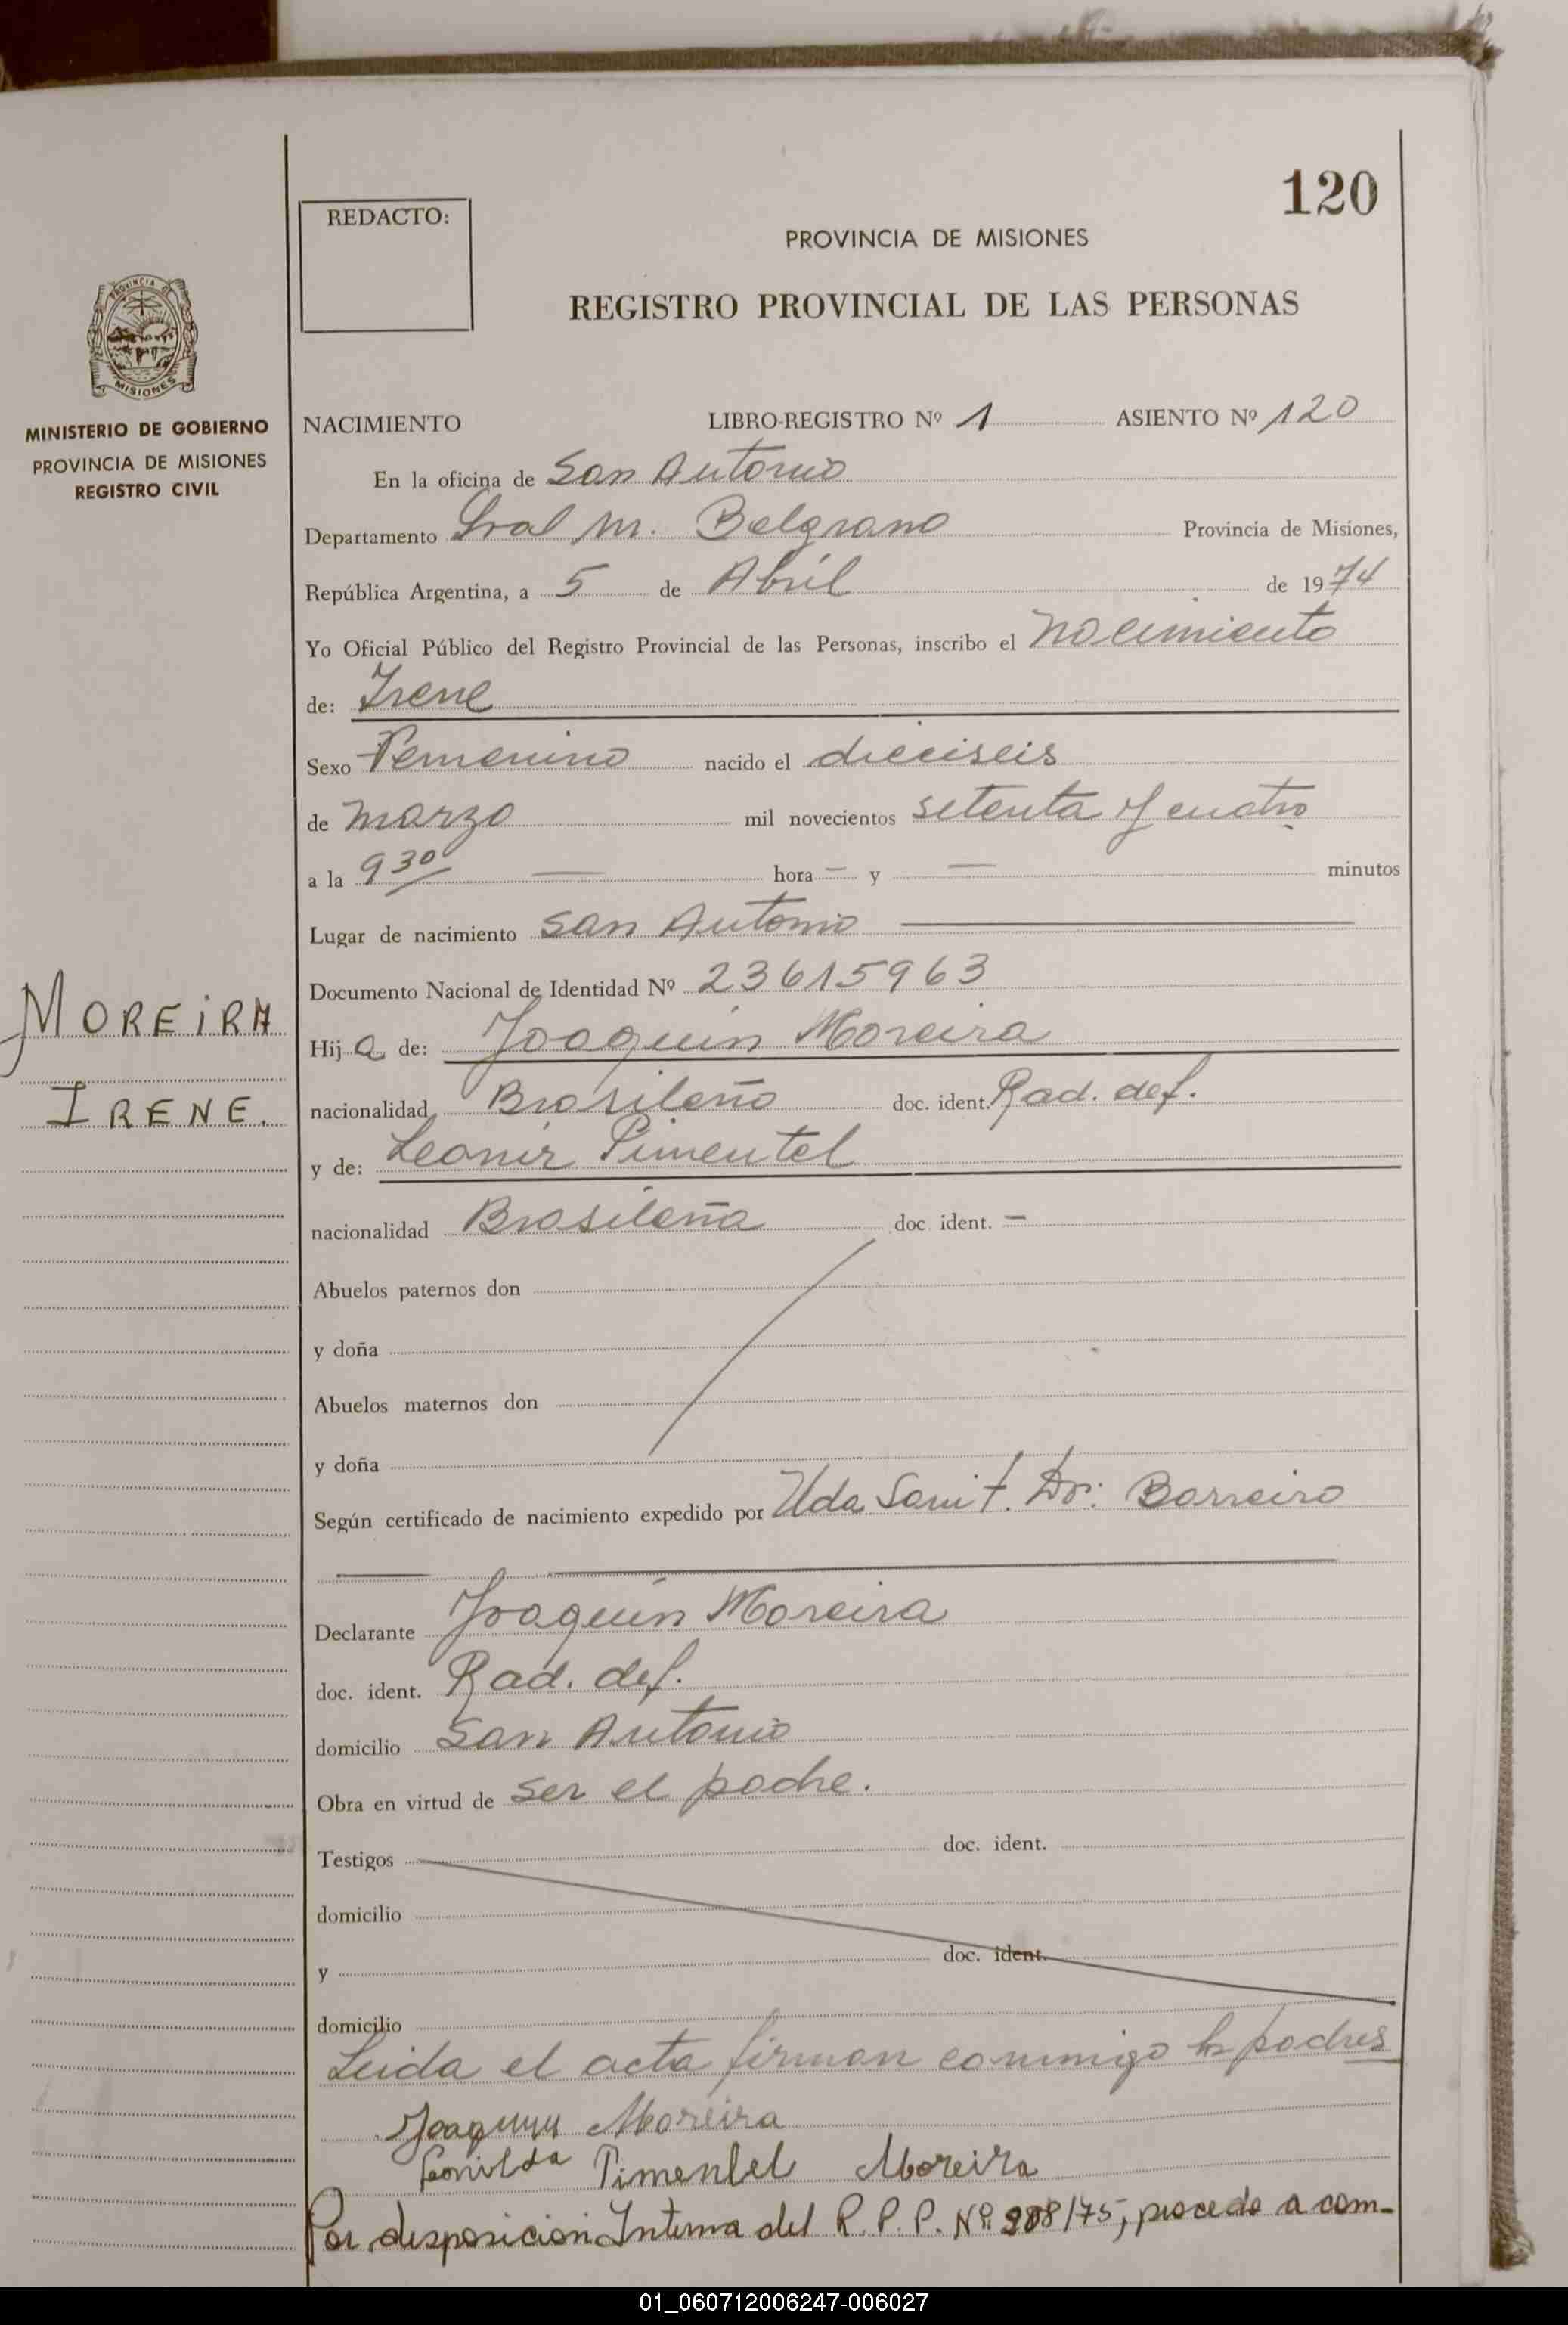 120
REDACTO:
PROVINCIA DE MISIONES
REGISTRO PROVINCIAL DE LAS PERSONAS
PROVINCIA DE MISIONES
MINISTERIO DE GOBIERNO
PROVINCIA DE MISIONES
REGISTRO CIVIL
NACIMIENTO LIBRO-REGISTRO Nº 1 ASIENTO Nº 120
En la oficina de San Antonio
Departamento Gral M. Belgrano Provincia de Misiones,
República Argentina, a 5 de Abril de 1974
Yo Oficial Público del Registro Provincial de las Personas, inscribo el nacimiento
de: Irene
Sexo Femenino nacido el dieciseis
de marzo mil novecientos setenta y cuatro
a la 9 30 hora — y — minutos
Lugar de nacimiento San Antonio
Documento Nacional de Identidad Nº 23615963
MOREIRA
IRENE.
Hij a de: Joaquin Moreira
nacionalidad Brasileño doc. ident. Rad. def.
y de: Leonir Pimentel
nacionalidad Brasileña doc. ident. —
Abuelos paternos don
y doña
Abuelos maternos don
y doña
Según certificado de nacimiento expedido por Uda Sanit. Dr. Barreiro
Declarante Joaquin Moreira
doc. ident. Rad. def.
domicilio San Antonio
Obra en virtud de ser el padre.
Testigos doc. ident.
domicilio
y doc. ident.
domicilio
Leida el acta firman conmigo los padres
Joaquin Moreira
Leonilda Pimentel Moreira
Por disposicion Interna del R. P. P. Nº 288/75, procedo a com-
01_060712006247-006027